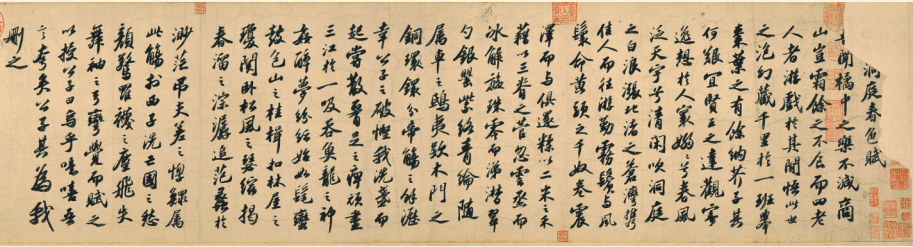 洞庭春色賦
吾聞橘中之樂不減商
山豈霜餘之不食而四老
人者游戲於其間悟此世
之泡幻藏千里於一班舉
棗葉之有餘納芥子其
何艱宜賢王之達觀寄
逸想於人寰嫋嫋兮春風
泛天宇兮清閑吹洞庭
之白浪漲北渚之蒼灣攜
佳人而往游勤霧鬢與風
鬟命黃頭之千奴卷震
澤而與俱還糅以二米之禾
藉以三脊之菅忽雲烝而
冰解旋珠零而涕潸翠
勺銀罌紫絡青綸隨
属車之鴟夷款木門之
銅鐶分帝觴之餘瀝
幸公子之破慳我洗盞而
起嘗散腰足之痺頑盡
三江於一吸吞魚龍之神
姦醉夢紛紜始如髦蠻
鼓包山之桂楫扣林屋之
瓊關臥松風之瑟縮揭
春溜之淙潺追范蠡於
渺茫弔夫差之惸鰥属
此觴於西子洗亡國之愁
顏驚羅襪之塵飛失
舞袖之弓彎覺而賦之
以授公子曰烏乎噫嘻吾
言夸矣公子其為我
刪之